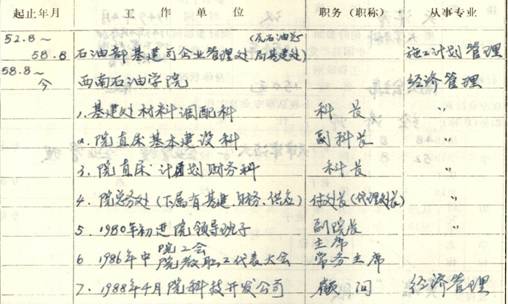 起止年月 工作单位 职务(职称) 从事专业
52.8~ (原石油总
58.8 石油部基建司企业管理处 局基建处) 施工计划管理
58.8~
今 西南石油学院 经济管理
1.基建处材料调配科 科长 〃
2.院直床基本建设科 副科长 〃
3.院直床计划财务科 科长 〃
4.院总务处(下属有基建、财务、供应) 付处长(代理处长) 〃
5.1980年初进院领导班子 副院长 〃
6.1986年中 院工会 主席
院教职工代表大会 常务主席 〃
7.1988年4月院科技开发公司 顾问 经济管理